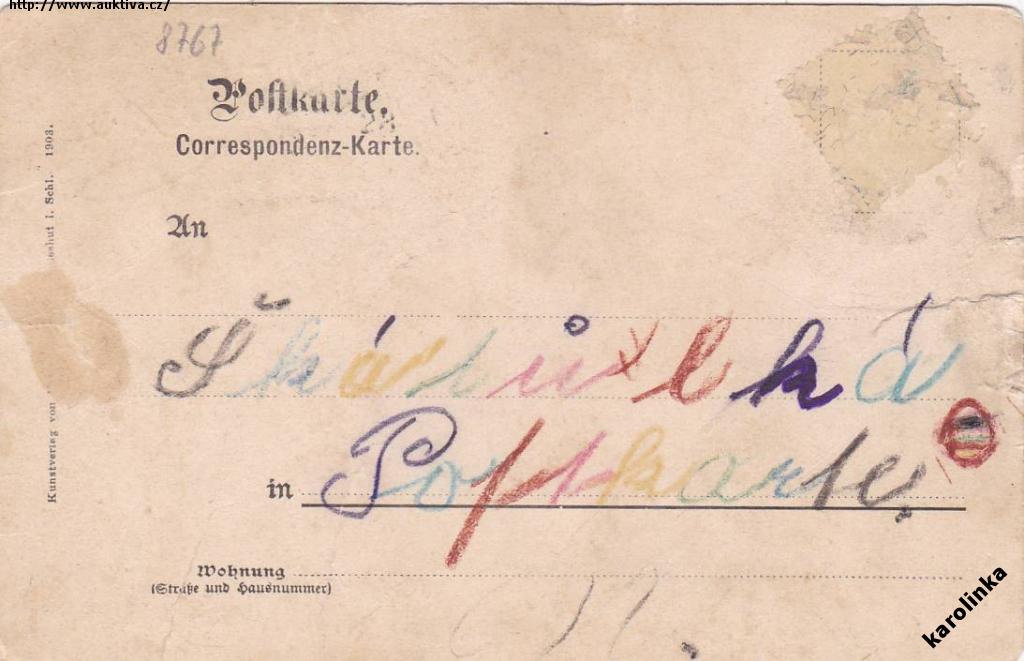 http://www.auktiva.cz/
8767
Postkarte.
Correspondenz-Karte.
An
in Postkarte.
Wohnung
(Straße und Hausnummer)
Kunstverlag von
eshut i. Schl. 1903.
karolinka